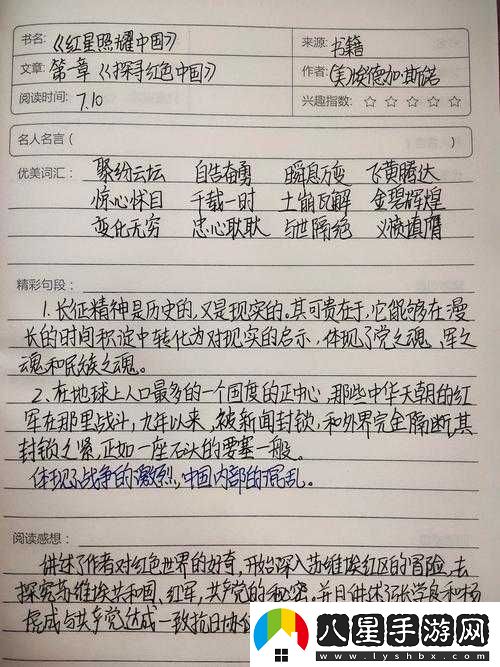 书名：《红星照耀中国》 来源：书籍
文章：第一章《探寻红色中国》 作者：(美)埃德加·斯诺
阅读时间：7.10 兴趣指数：☆ ☆ ☆ ☆ ☆
名人名言（ ）
优美词汇： 聚纷云坛 自告奋勇 瞬息万变 飞黄腾达
惊心怵目 千载一时 土崩瓦解 金碧辉煌
变化无穷 忠心耿耿 与世隔绝 义愤填膺
精彩句段：
1. 长征精神是历史的,又是现实的。其可贵在于,它能够在漫
长的时间积淀中转化为对现实的启示,体现了党之魂、军之
魂和民族之魂。
2. 在地球上人口最多的一个国度的正中心,那些中华天朝的红
军在那里战斗,九年以来,被新闻封锁,和外界完全隔断,其
封锁之紧,正如一座石头的要塞一般。
体现了战争的激烈,中国内部的混乱。
阅读感想：
讲述了作者对红色世界的好奇,开始深入苏维埃红区的冒险,去
探究苏维埃共和国、红军、共产党的秘密,并且讲述了张学良和杨
虎成与共产党达成一致抗日协
八星手游网
www.lyshbx.com